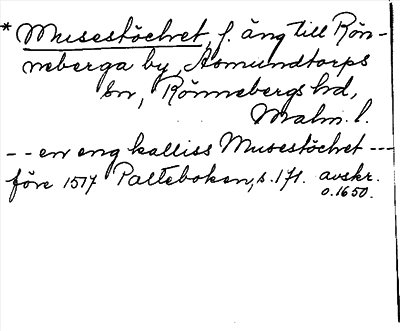 * Musestöchet, f. äng till Rön-
neberga by, Asmundtorps
sn, Rönnebergs hd,
Malm. l.
-- en eng kalliss Musestöchet ---
före 1517 Palteboken, s. 171. avskr.
o. 1650.